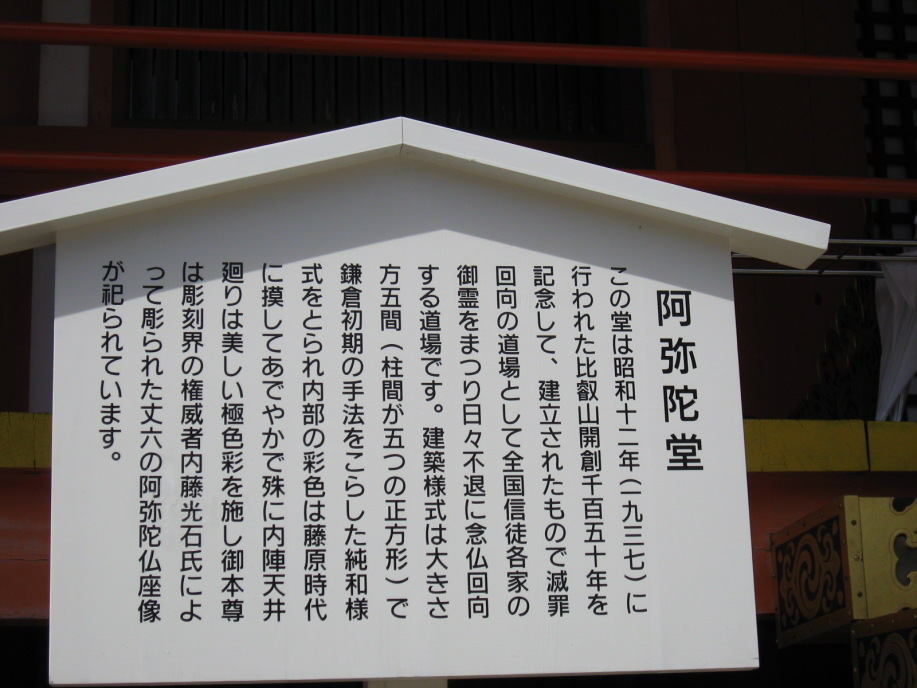 阿弥陀堂
この堂は昭和十二年(一九三七)に
行われた比叡山開創千百五十年を
記念して、建立されたもので滅罪
回向の道場として全国信徒各家の
御霊をまつり日々不退に念仏回向
する道場です。建築様式は大きさ
方五間(柱間が五つの正方形)で
鎌倉初期の手法をこらした純和様
式をとられ内部の彩色は藤原時代
に摸してあでやかで殊に内陣天井
廻りは美しい極色彩を施し御本尊
は彫刻界の権威者内藤光石氏によ
って彫られた丈六の阿弥陀仏座像
が祀られています。